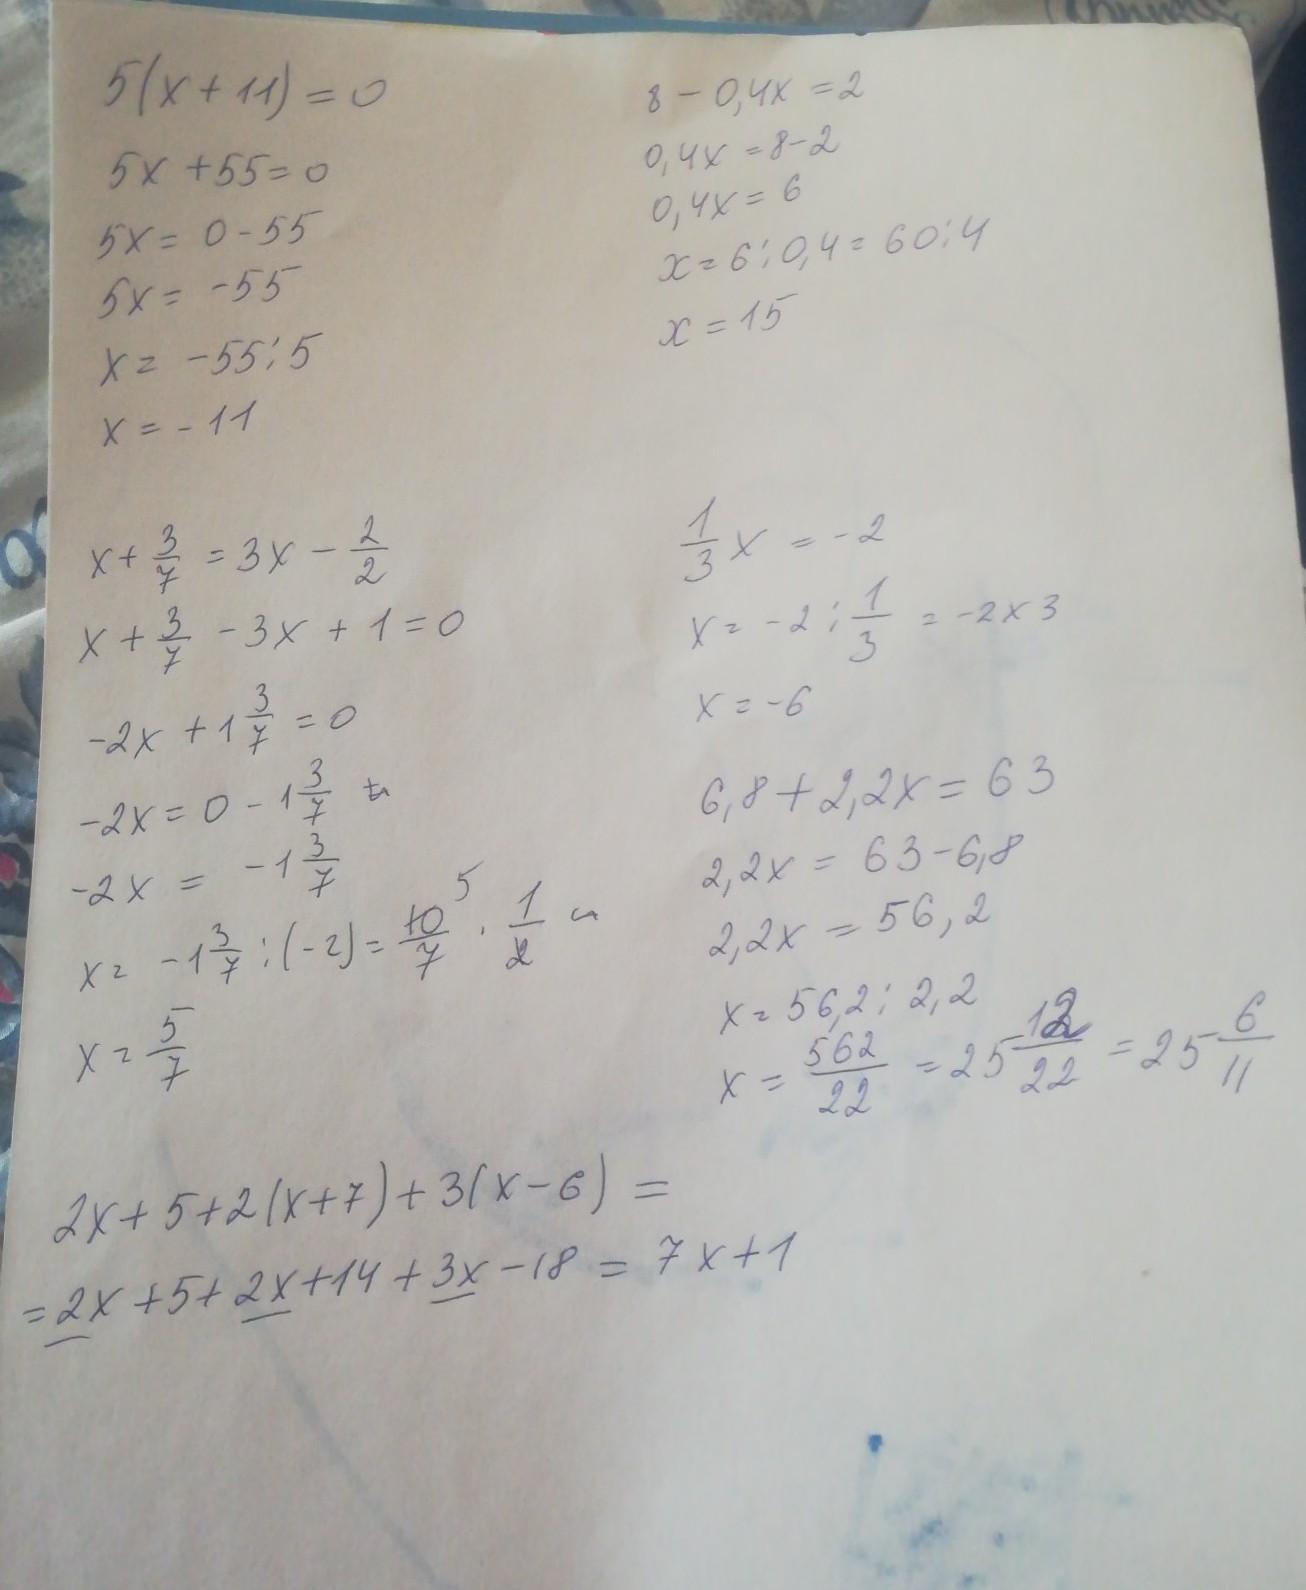 5(x+11)=0
5x+55=0
5x=0-55
5x=-55
x=-55:5
x=-11
8-0,4x=2
0,4x=8-2
0,4x=6
x=6:0,4=60:4
x=15
x+3/7=3x-2/2
x+3/7-3x+1=0
-2x+1 3/7=0
-2x=0-1 3/7
-2x=-1 3/7
x=-1 3/7:(-2)=10/7 5·1/2
x=5/7
1/3x=-2
x=-2:1/3=-2x3
x=-6
6,8+2,2x=63
2,2x=63-6,8
2,2x=56,2
x=56,2:2,2
x=562/22=25 12/22=25 6/11
2x+5+2(x+7)+3(x-6)=
=2x+5+2x+14+3x-18=7x+1